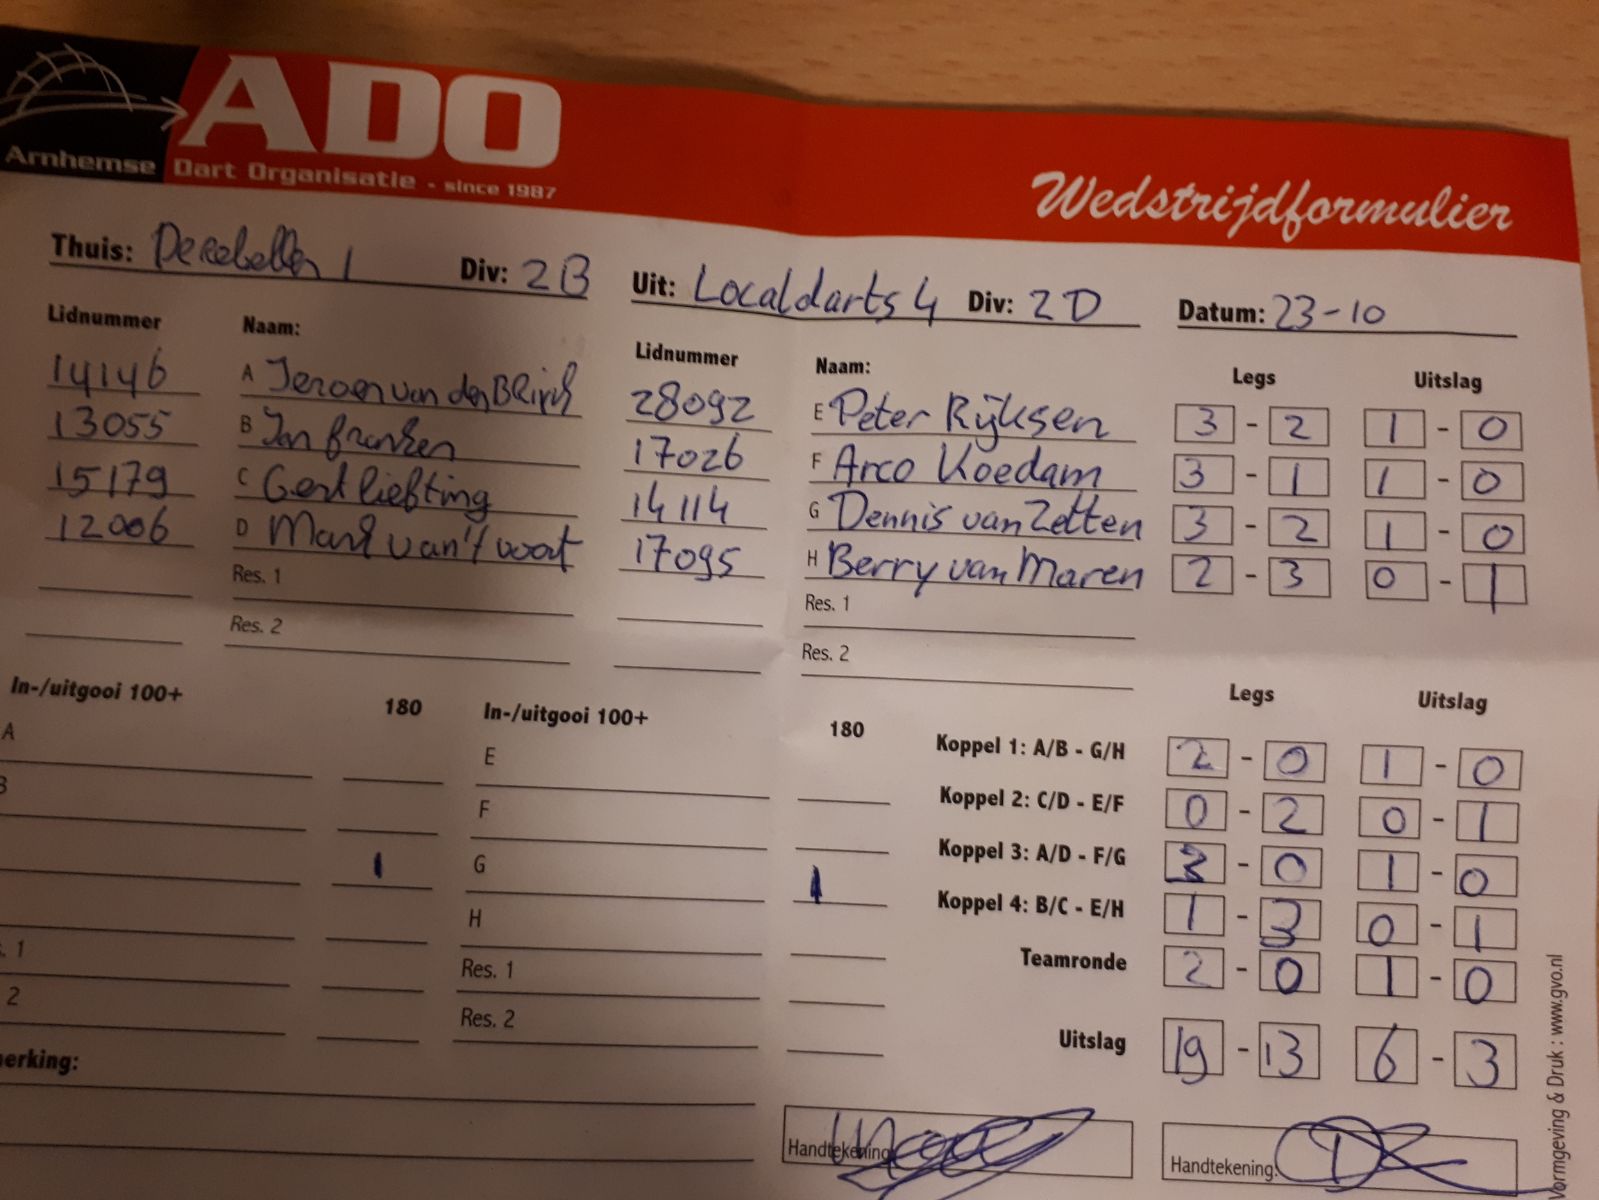 ADO
Arnhemse Dart Organisatie - since 1987
Wedstrijdformulier
Thuis: De Rebellen 1 Div: 2B Uit: Localdarts 4 Div: 2D Datum: 23-10
Lidnummer Naam: Lidnummer Naam: Legs Uitslag
14146 A Jeroen van den 28092 E Peter Rijksen 3 - 2 1 - 0
13055 B Jan Franken 17026 F Arco Koedam 3 - 1 1 - 0
15179 C Gert Liefting 14114 G Dennis van Zetten 3 - 2 1 - 0
12006 D Mark van't 17095 H Berry van Maren 2 - 3 0 - 1
Res. 1 Res. 1
Res. 2 Res. 2
In-/uitgooi 100+ 180 In-/uitgooi 100+ 180 Legs Uitslag
A E Koppel 1: A/B - G/H 2 - 0 1 - 0
B F Koppel 2: C/D - E/F 0 - 2 0 - 1
1 G 1 Koppel 3: A/D - F/G 3 - 0 1 - 0
H Koppel 4: B/C - E/H 1 - 3 0 - 1
s. 1 Res. 1 Teamronde 2 - 0 1 - 0
2 Res. 2 Uitslag 19 - 13 6 - 3
erking:
Handtekening: Handtekening:
Vormgeving & Druk : www.gvo.nl